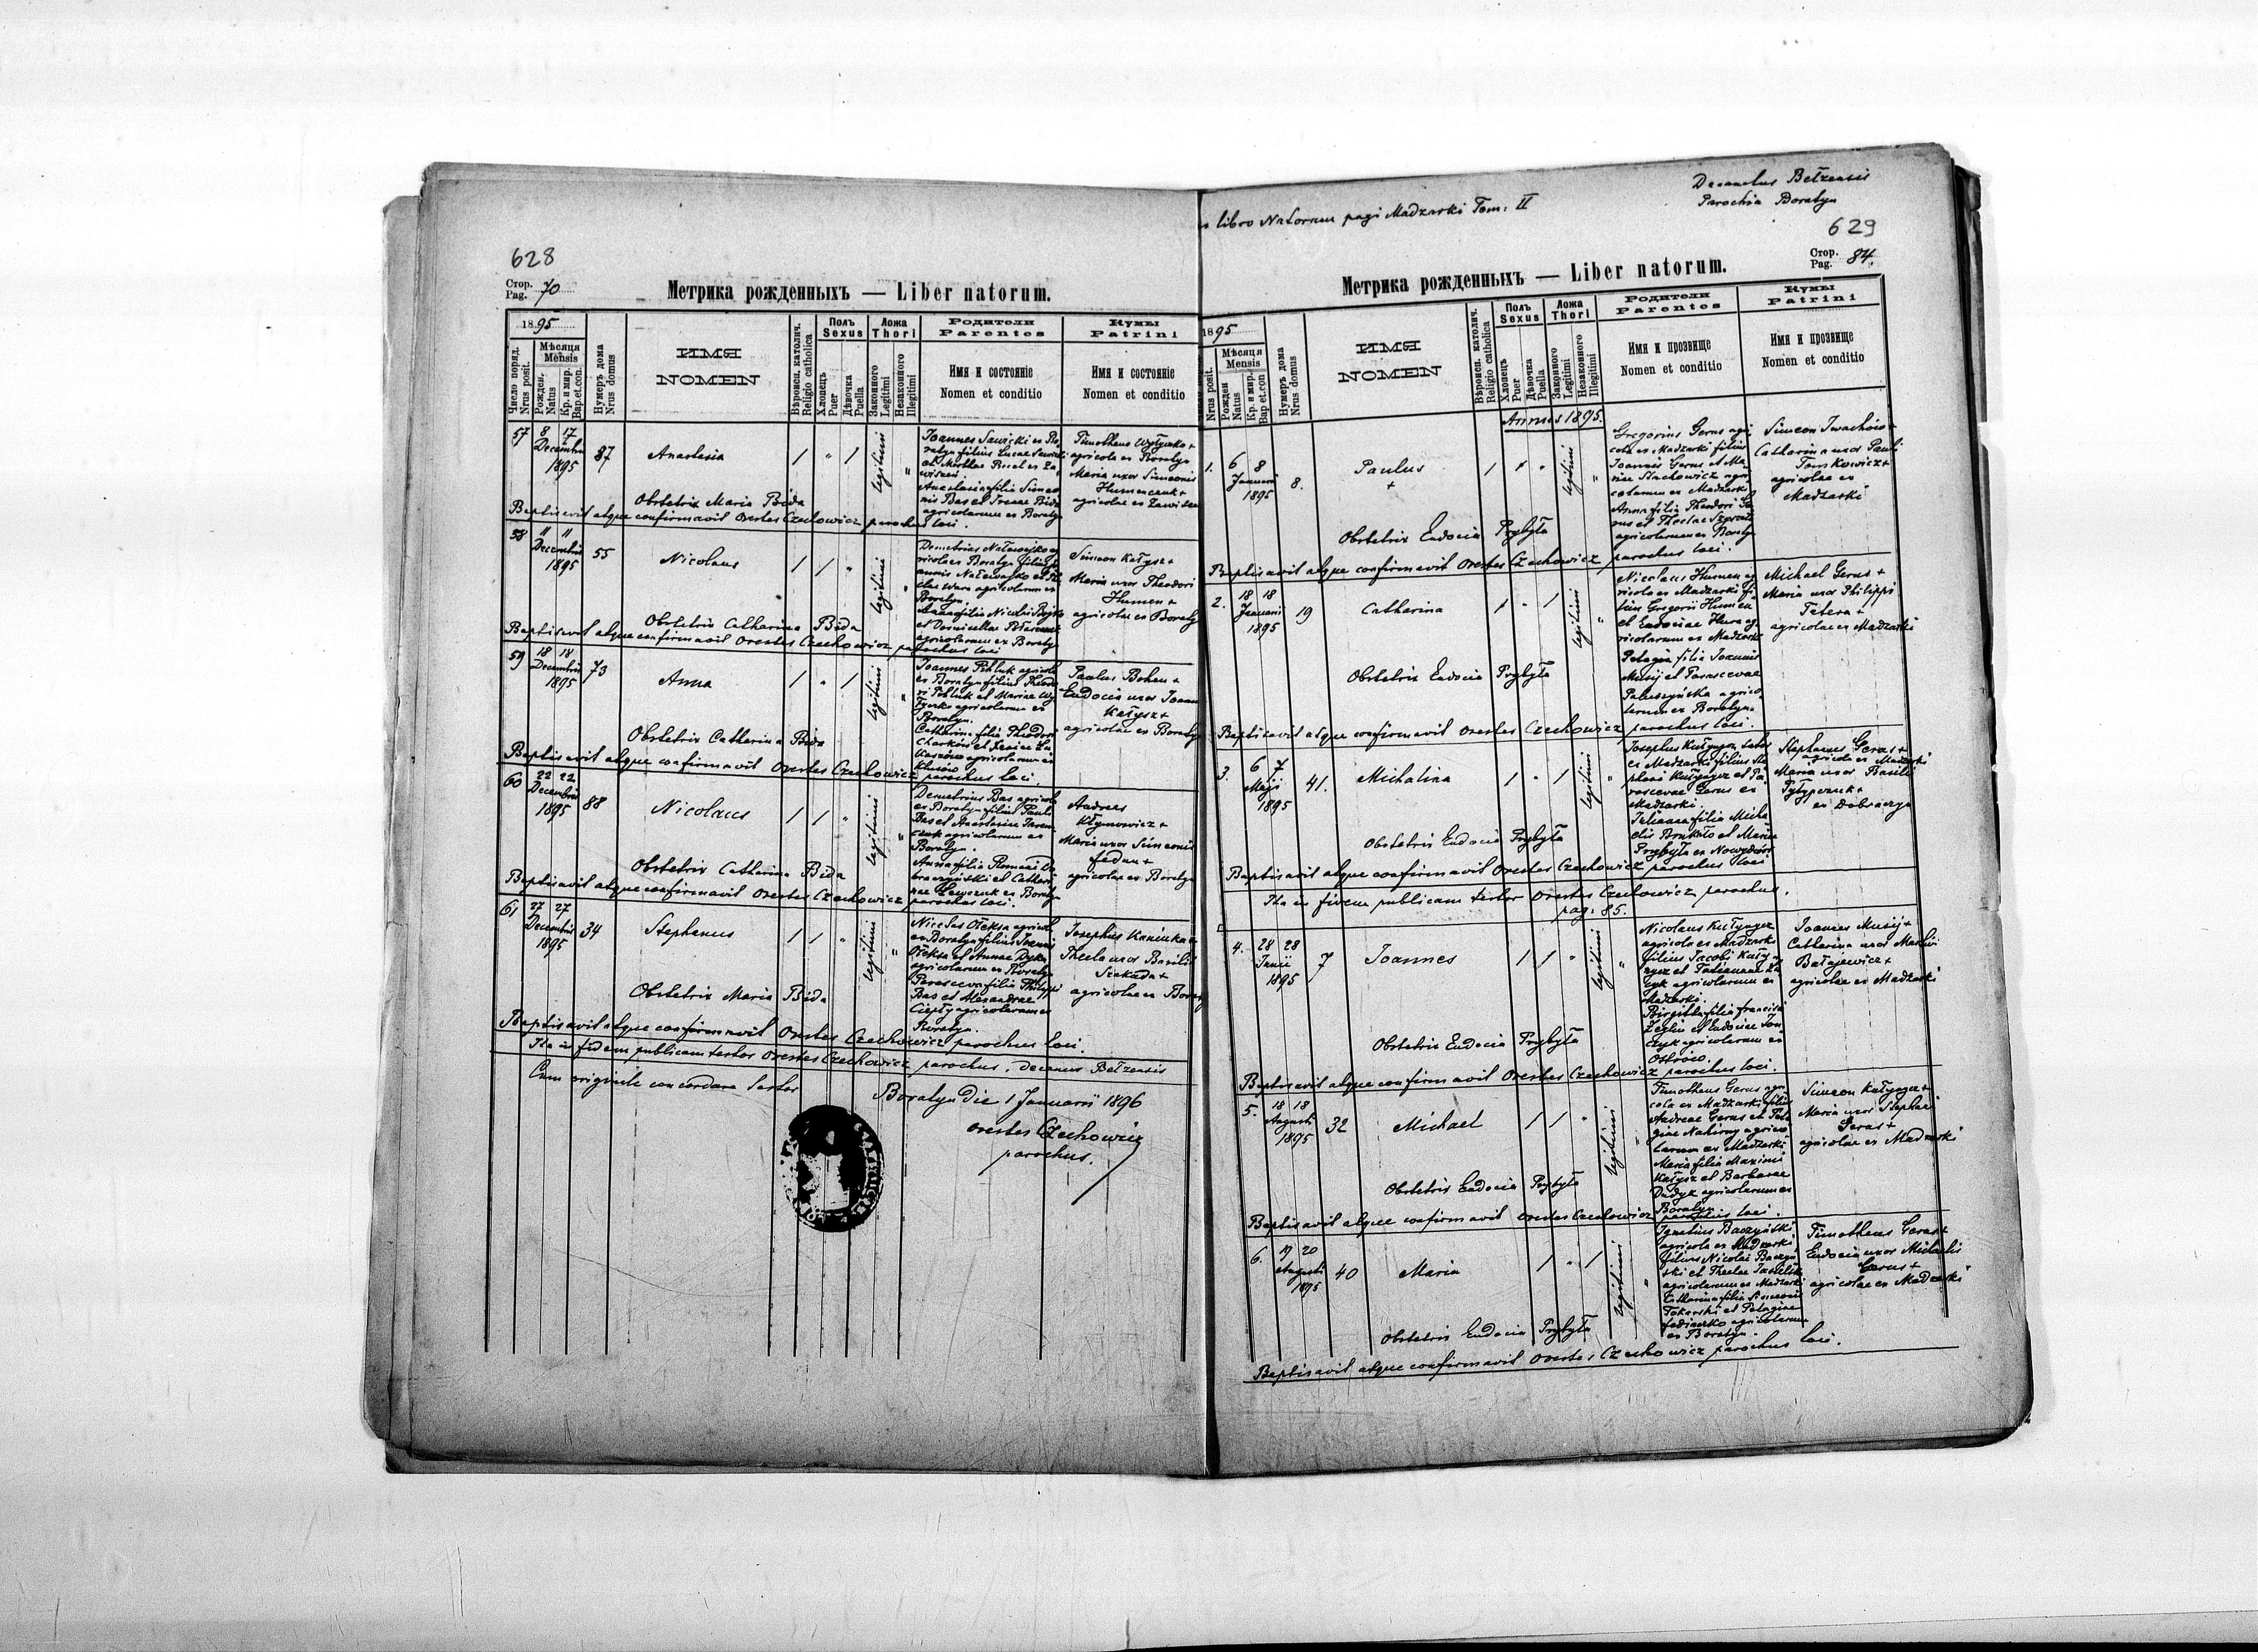 628
Стор.
Pag. 70
Метрика рожденныхъ — Liber natorum.
1895
Число поряд.
Nrus posit.
Мѣсяця
Mensis
Рожден.
Natus
Кр. и мир.
Bap. et. con.
Нумеръ дома
Nrus domus
ИМЯ
NOMEN
Вѣроисп. католич.
Religio catholica
Полъ
Sexus
Хлопецъ
Puer
Дѣвочка
Puella
Ложа
Thori
Законного
Legitimi
Незаконного
Illegitimi
Родители
Parentes
Имя и состояніе
Nomen et conditio
Кумы
Patrini
Имя и состояніе
Nomen et conditio
57 8 17 Decembris 1895 87 Anastasia / " / legitimi "
Joannes Sawicki ex Bo-
ratyn filius Lucae Sawicki
Anastasia filia Simeo-
nis Bas et Irenae Bida
agricolarum ex Boratyn
Timotheus
agricola ex Boratyn
Maria uxor Simeonis
Humenczuk +
Obstetrix Maria Bida
Baptisavit atque confirmavit Orestes Czechowicz parochus loci.
58 11 11 Decembris 1895 55 Nicolaus / / " legitimi "
Demetrius Nalewajko ag-
ricola ex Boratyn filius Jo-
annis Nalewajko et
agricolarum ex
Boratyn.
Anna filia Nicolai
agricolarum ex Boratyn
Simeon Kałysz +
Maria uxor Theodori
Humen +
agricolae ex Boratyn
Obstetrix Catharina Bida
Baptisavit atque confirmavit Orestes Czechowicz parochus loci
59 18 18 Decembris 1895 73 Anna / " / legitimi "
Joannes Pihluk agricola
ex Boratyn filius Theodo-
ri Pihluk et Mariae
agricolarum ex
Boratyn.
Catharina filia Theodori
agricolarum ex
Paulus Bohen +
Eudocia uxor Joannis
Kałysz +
agricolae ex Boratyn
Obstetrix Catharina Bida
Baptisavit atque confirmavit Orestes Czechowicz parochus loci.
60 22 22 Decembris 1895 88 Nicolaus / / " legitimi "
Demetrius Bas agricola
ex Boratyn filius Pauli
Bas et Anastasiae
agricolarum ex
Boratyn.
Anna filia Romani
et Cathari-
nae ex Boratyn
Andreas
Kłymowicz +
Maria uxor Simeonis
Fedun +
agricolae ex Boratyn
Obstetrix Catharina Bida
Baptisavit atque confirmavit Orestes Czechowicz parochus loci.
61 27 27 Decembris 1895 34 Stephanus / / " legitimi "
Nicolas Oleksa agricola
ex Boratyn filius Joannis
Oleksa et Annae Dyka
agricolarum ex Boratyn
Parasceva filia Philippi
Bas et Alexandrae
Ciepły agricolarum ex
Boratyn.
Josephus Kaminka +
Thecla uxor Basilii
Szekeda +
agricolae ex Boratyn
Obstetrix Maria Bida
Baptisavit atque confirmavit Orestes Czechowicz parochus loci.
Ita in fidem publicam testor Orestes Czechowicz parochus, decanus Bełzensis
Cum originale concordare testor
Boratyn die 1 Januarii 1896
Orestes Czechowicz
parochus.
Decanatus Bełzensis
Parochia Boratyn
libro Natorum pagi Madzarki Tom: II
629
Стор.
Pag. 84.
Метрика рожденныхъ — Liber natorum.
1895
Nrus posit.
Мѣсяця
Mensis
Рожден
Natus
Кр. и мир.
Bap. et. con.
Нумеръ дома
Nrus domus
ИМЯ
NOMEN
Вѣроисп. католич.
Religio catholica
Полъ
Sexus
Хлопецъ
Puer
Дѣвочка
Puella
Ложа
Thori
Законного
Legitimi
Незаконного
Illegitimi
Родители
Parentes
Имя и прозвище
Nomen et conditio
Кумы
Patrini
Имя и прозвище
Nomen et conditio
Annus 1895.
1. 6 8 Januarii 1895 8. Paulus + / / " legitimi "
Gregorius Gerus agri-
cola ex Madzarki filius
Joannis Gerus et Ma-
riae Stachowicz agri-
colarum ex Madzarki
Anna filia Theodori
et Theclae
agricolarum ex Boratyn
Simeon Iwachów +
Catharina uxor Pauli
Tomkowicz +
agricolae ex
Madzarki
Obstetrix Eudocia Prybyła
Baptisavit atque confirmavit Orestes Czechowicz parochus loci.
2. 18 18 Januarii 1895 19 Catharina / " / legitimi "
Nicolaus Humen ag-
ricola ex Madzarki fi-
lius Gregorii Humen
et Eudociae Hura ag-
ricolarum ex Madzarki
Pelagia filia Joannis
Musij et Parascevae
Paluszyńska agrico-
larum ex Boratyn
Michael Gerus +
Maria uxor Philippi
Tetera +
agricolae ex Madzarki
Obstetrix Eudocia Prybyła
Baptisavit atque confirmavit Orestes Czechowicz parochus loci.
3. 6 7 Maji 1895 41. Michalina / " / legitimi "
Josephus Kułynycz faber
ex Madzarki filius Ste-
phani Kułynycz et Pa-
rascevae Gerus ex
Madzarki.
Julianna filia Micha-
elis et Mariae
Prybyła ex Nowydwór
Stephanus Gerus +
agricola ex Madzarki
Maria uxor Basilii
Pyłypczuk +
ex Dobraczyn
Obstetrix Eudocia Prybyła
Baptisavit atque confirmavit Orestes Czechowicz parochus loci
Ita in fidem publicam testor Orestes Czechowicz parochus.
pag: 85.
4. 28 28 Junii 1895 7 Joannes / / " legitimi "
Nicolaus Kułynycz
agricola ex Madzarki
filius Jacobi Kuły-
nycz et Tatiannae
agricolarum ex
Madzarki.
Birgitta filia Francisci
Żeglin et Eudociae
agricolarum ex
Ostrów.
Joannes Musij +
Catharina uxor Martini
Bałajewicz +
agricolae ex Madzarki
Obstetrix Eudocia Prybyła
Baptisavit atque confirmavit Orestes Czechowicz parochus loci.
5. 18 18 Augusti 1895 32 Michael / / " legitimi "
Timotheus Gerus agri-
cola ex Madzarki filius
Andreae Gerus et Pela-
giae Nahirny agrico-
larum ex Madzarki
Maria filia Maximi
Kałysz et Barbarae
Dudyk agricolarum ex
Boratyn.
Simeon Kułynycz +
Maria uxor Stephani
Gerus +
agricolae ex Madzarki
Obstetrix Eudocia Prybyła
Baptisavit atque confirmavit Orestes Czechowicz parochus loci.
6. 19 20 Augusti 1895 40 Maria / " / legitimi "
Ignatius Baczyński
agricola ex Madzarki
filius Nicolai Baczyń-
ski et Theclae
agricolarum ex Madzarki
Catharina filia Simeonis
Tokarski et Pelagiae
agricolarum
ex Boratyn.
Timotheus Gerus +
Eudocia uxor Michaelis
Gerus +
agricolae ex Madzarki
Obstetrix Eudocia Prybyła
Baptisavit atque confirmavit Orestes Czechowicz parochus loci.